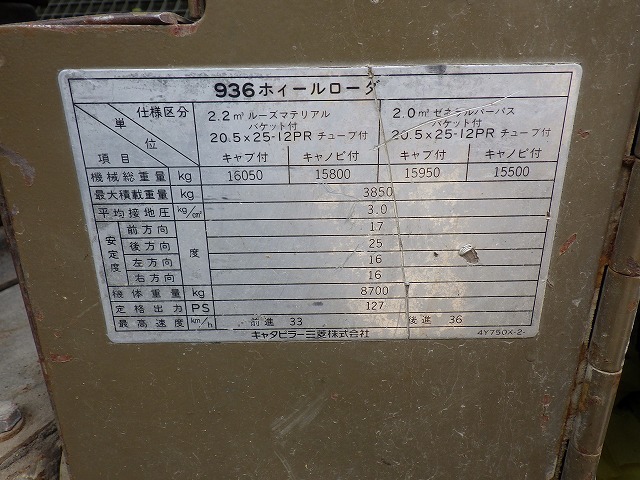 936ホィールローダ
仕様区分
単位
項目
2.2㎥ルーズマテリアル
バケット付
20.5×25-12PR チューブ付
2.0㎥ゼネラルパーパス
バケット付
20.5×25-12PR チューブ付
キャブ付 キャノピ付 キャブ付 キャノピ付
機械総重量 kg 16050 15800 15950 15500
最大積載重量 kg 3850
平均接地圧 kg/c㎡ 3.0
安定度 前方向 度 17
後方向 25
左方向 16
右方向 16
機体重量 kg 8700
定格出力 PS 127
最高速度 km/h 前進 33 後進 36
キャタピラー三菱株式会社
4Y750X-2-